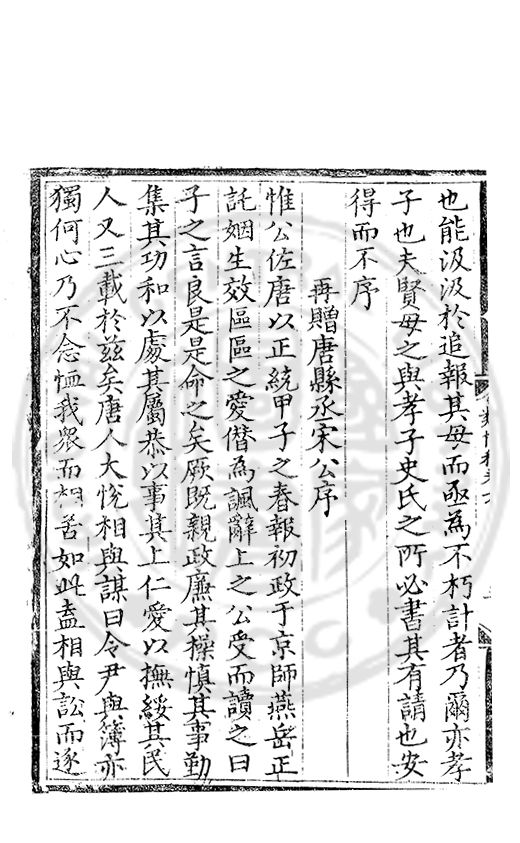 也能汲汲於追報其母而亟為不朽計者乃爾亦孝
子也夫賢母之與孝子史氏之所必書其有請也安
得而不序
再贈唐縣丞宋公序
惟公佐唐以正統甲子之春報初政于京師燕岳正
託姻生效區區之愛僭為諷辭上之公受而讀之曰
子之言良是是命之矣厥既親政廉其操慎其事勤
集其功和以處其屬恭以事其上仁愛以撫綏其民
人又三載於茲矣唐人大悅相與謀曰令尹與簿亦
獨何心乃不念恤我眾而相苦如此盍相與訟而逐